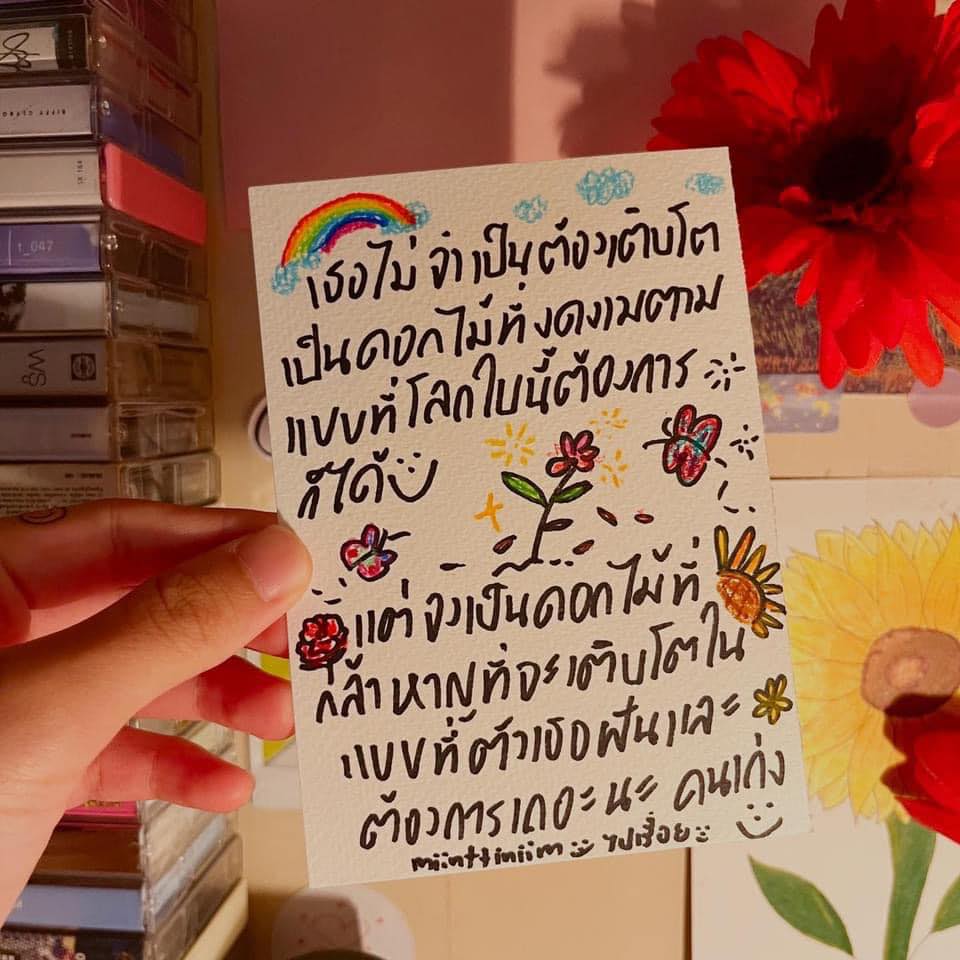 BIFFY CLYRO
SK 184
t_047
SM
เธอไม่จำเป็นต้องเติบโต
เป็นดอกไม้ที่งดงามตาม
แบบที่โลกใบนี้ต้องการ
ก็ได้
แต่จงเป็นดอกไม้ที่
กล้าหาญที่จะเติบโตใน
แบบที่ตัวเธอฝันและ
ต้องการเถอะนะ คนเก่ง
miinttiniim ไปเรื่อย